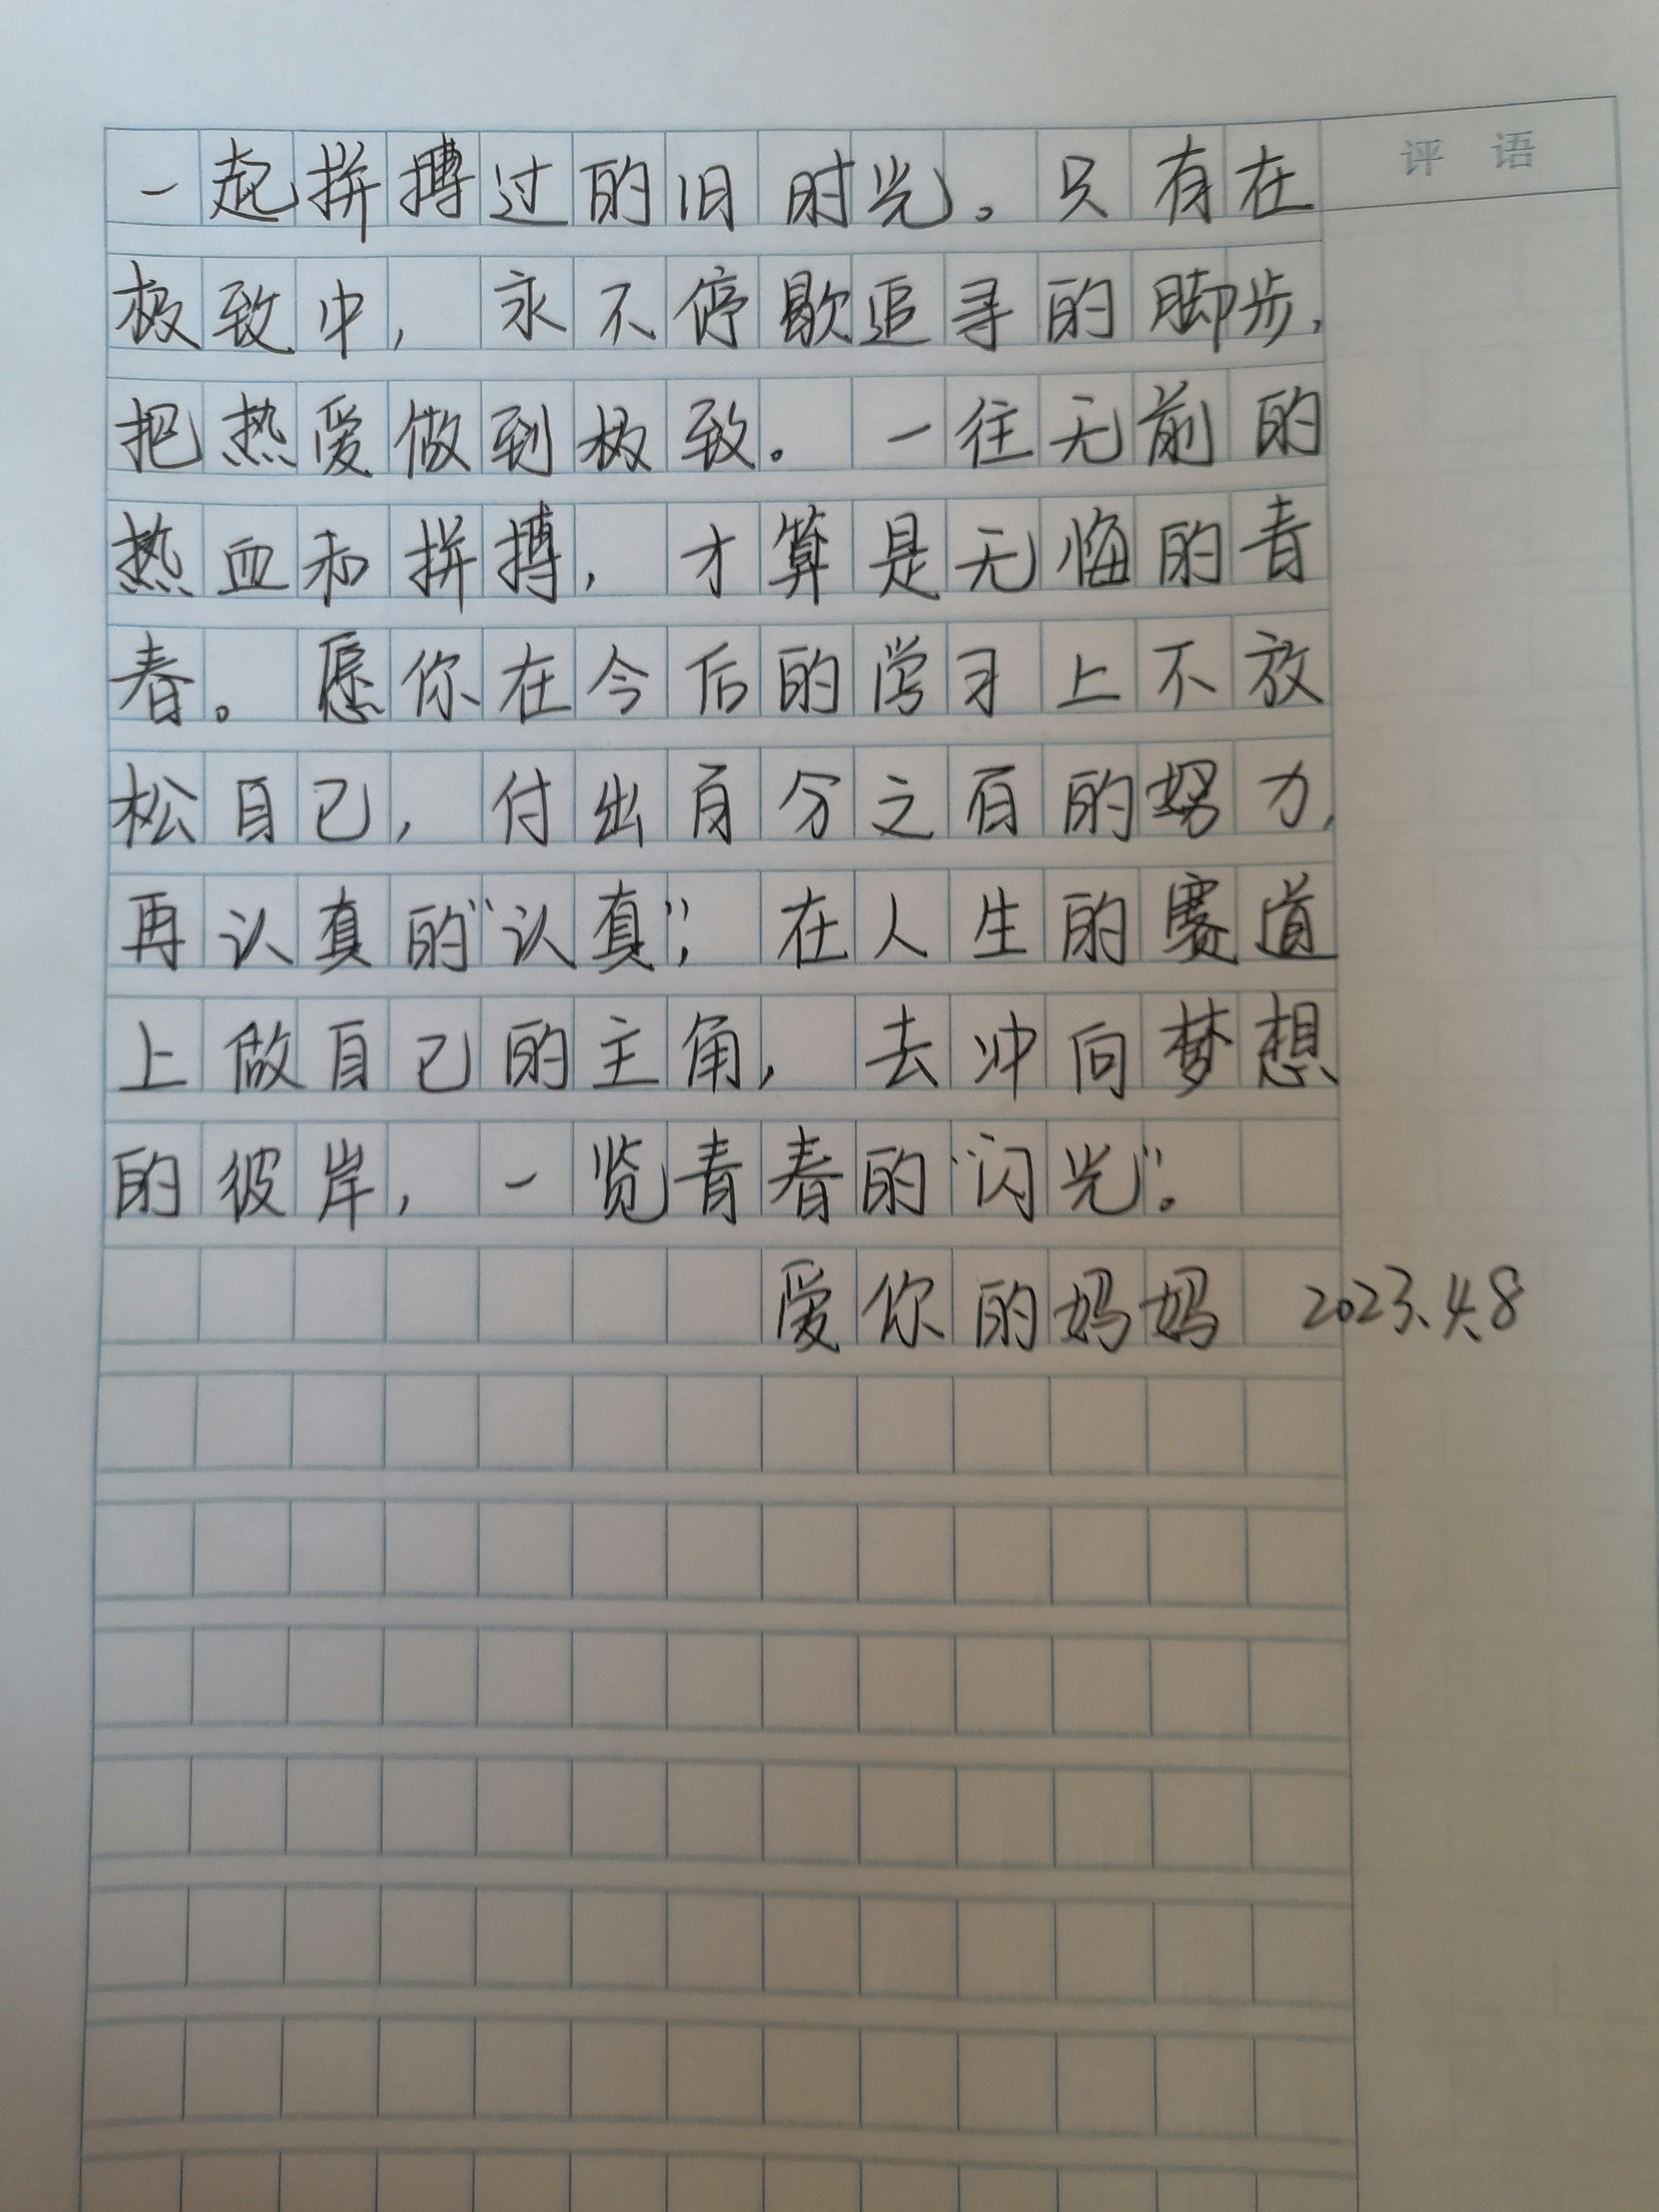 评 语
一起拼搏过的旧时光。只有在
极致中，永不停歇追寻的脚步，
把热爱做到极致。一往无前的
热血和拼搏，才算是无悔的青
春。愿你在今后的学习上不放
松自己，付出百分之百的努力，
再认真的“认真”；在人生的赛道
上做自己的主角，去冲向梦想
的彼岸，一览青春的“闪光”。
爱你的妈妈 2023.4.8